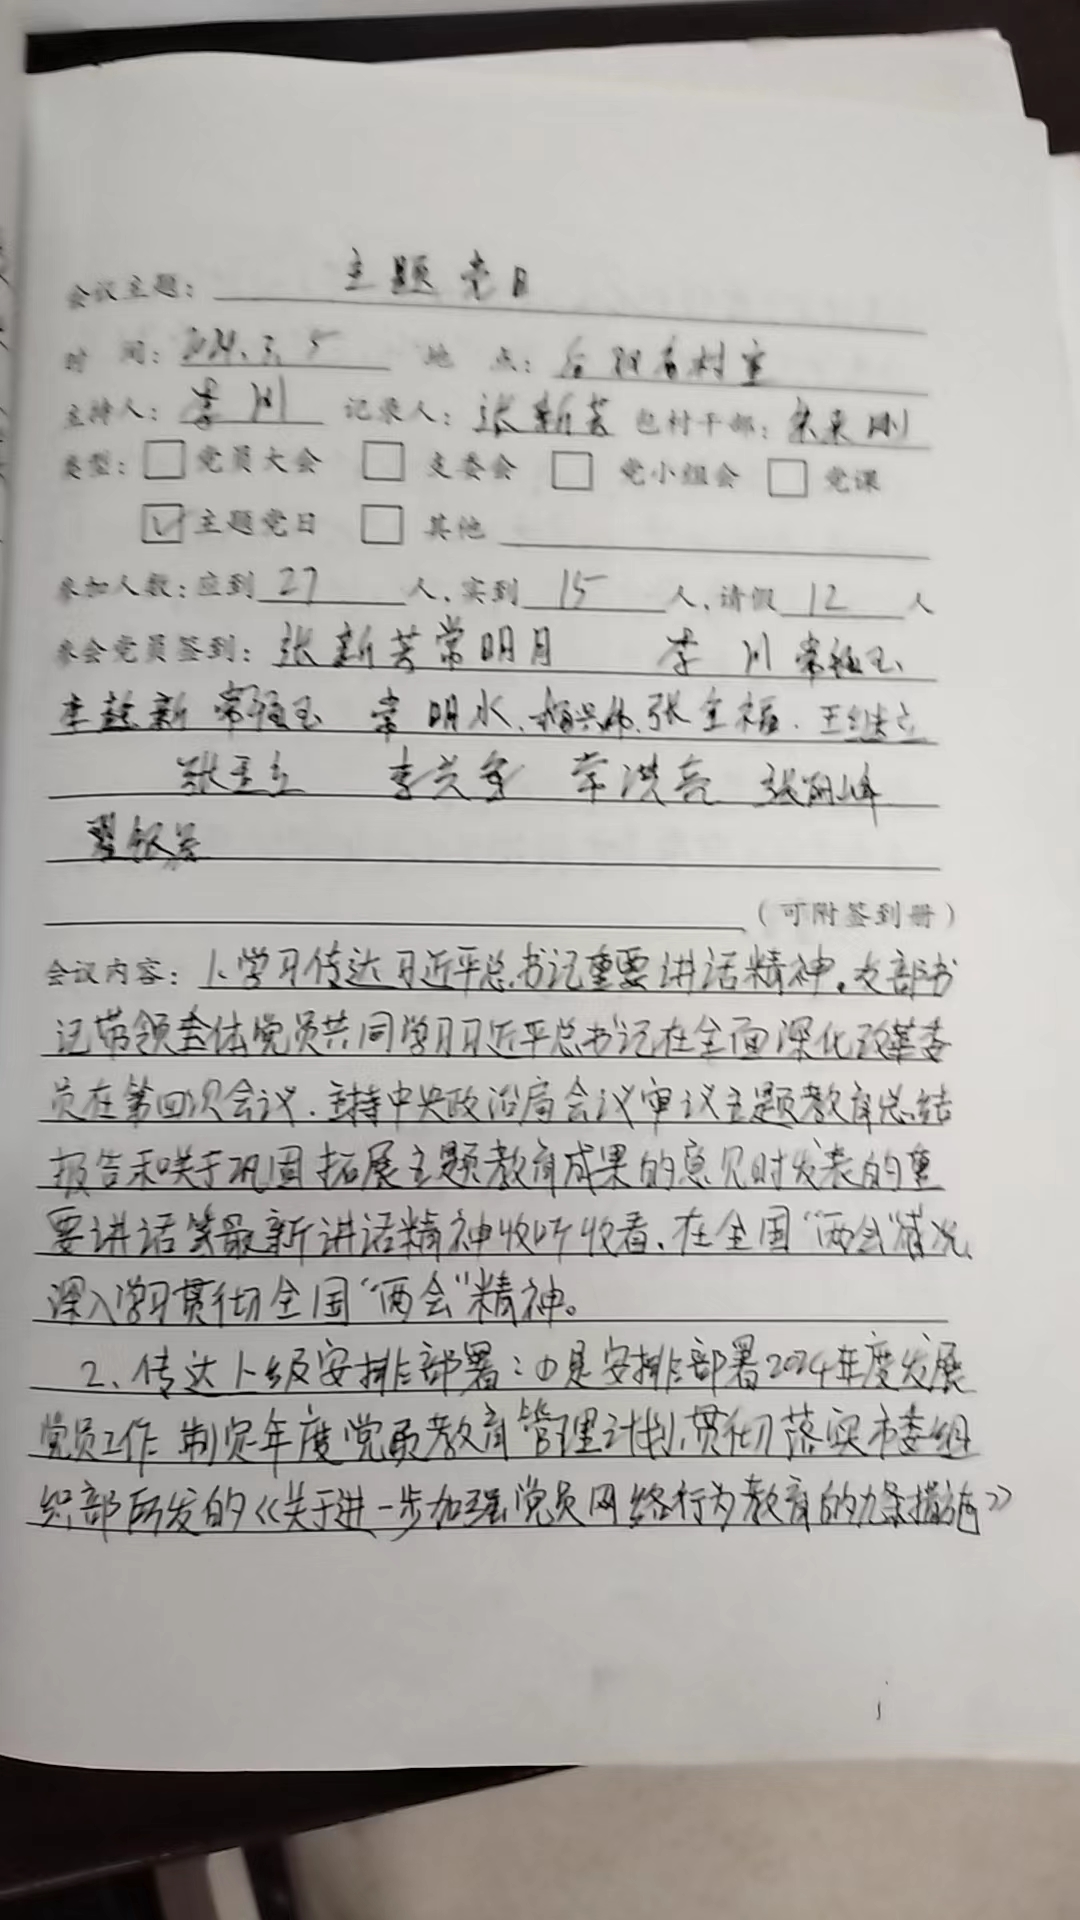 会议主题： 主题党日
时 间：2024.3.5 地 点：村室
主持人：李川 记录人：张新芳 包村干部：
类型：□党员大会 □支委会 □党小组会 □党课
☑主题党日 □其他
参加人数：应到 27 人，实到 15 人，请假 12 人
参会党员签到：张新芳 常明月 李川
常明水、张全福、王继立
张玉立 李兴 常洪亮 张丽峰
（可附签到册）
会议内容：1、学习传达习近平总书记重要讲话精神。支部书
记带领全体党员共同学习习近平总书记在全面深化改革委
员在第四次会议、主持中央政治局会议审议主题教育总结
报告和关于巩固拓展主题教育成果的意见时发表的重
要讲话等最新讲话精神收听收看、在全国“两会”情况、
深入学习贯彻全国“两会”精神。
2、传达上级安排部署：①是安排部署2024年度发展
党员工作 制定年度党员教育管理计划，贯彻落实市委组
织部所发的《关于进一步加强党员网络行为教育的九条措施》